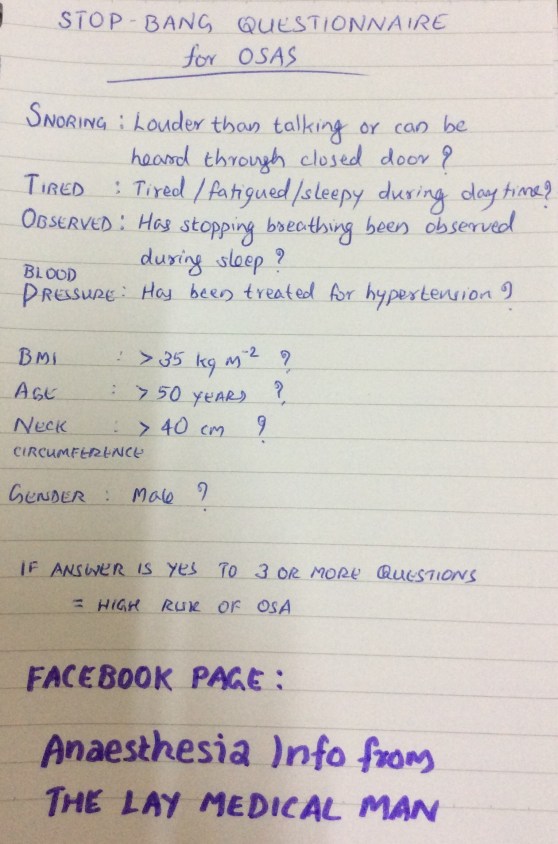 STOP-BANG QUESTIONNAIRE
for OSAS
SNORING : Louder than talking or can be
heard through closed door ?
TIRED : Tired/fatigued/sleepy during daytime?
OBSERVED : Has stopping breathing been observed
during sleep ?
BLOOD
PRESSURE : Has been treated for hypertension ?
BMI : > 35 kg m⁻² ?
AGE : > 50 YEARS ?
NECK : > 40 cm ?
CIRCUMFERENCE
GENDER : Male ?
IF ANSWER IS YES TO 3 OR MORE QUESTIONS
= HIGH RISK OF OSA
FACEBOOK PAGE :
Anaesthesia Info from
THE LAY MEDICAL MAN